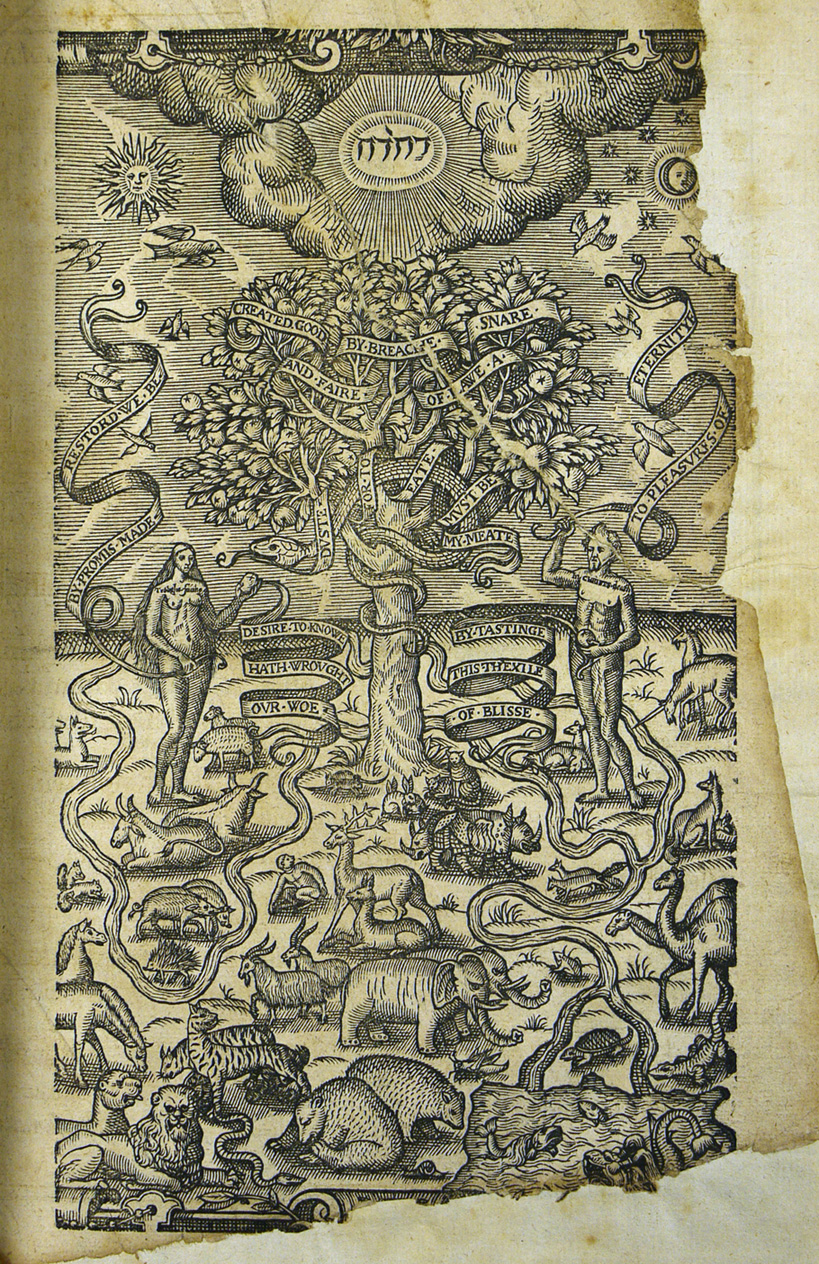 יהוה
CREATED.GOOD
AND.FAIRE
BY.BREACHE
OF.LAWE.A
SNARE
BY.PROMIS.MADE
RESTORD.WE.BE
TO.PLEASVRES.OF
ETERNITYE
DVST
FOR.TO
EATE
MVST.BE
MY.MEATE
DESIRE.TO.KNOWE
HATH.WROVGHT
OVR.WOE
BY.TASTINGE
THIS.TH'EXILE
OF.BLISSE